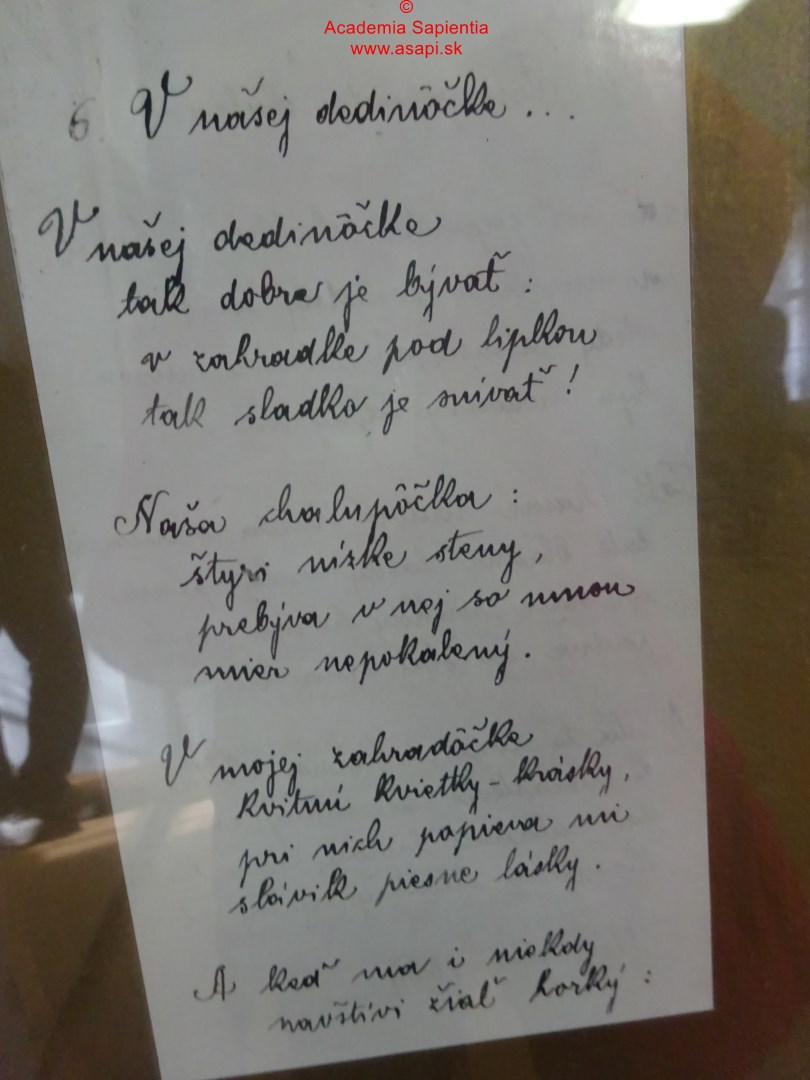 ©
Academia Sapientia
www.asapi.sk
6. V našej dedinôčke...
V našej dedinôčke
tak dobre je bývať:
v zahradke pod lipkou
tak sladko je snívať!
Naša chalupôčka:
štyri nízke steny,
prebýva v nej so mnou
mier nepokalený.
V mojej zahradôčke
kvitnú kvietky-krásky,
pri nich popieva mi
slávik piesne lásky.
A keď ma i niekdy
navštívi žiaľ horký: